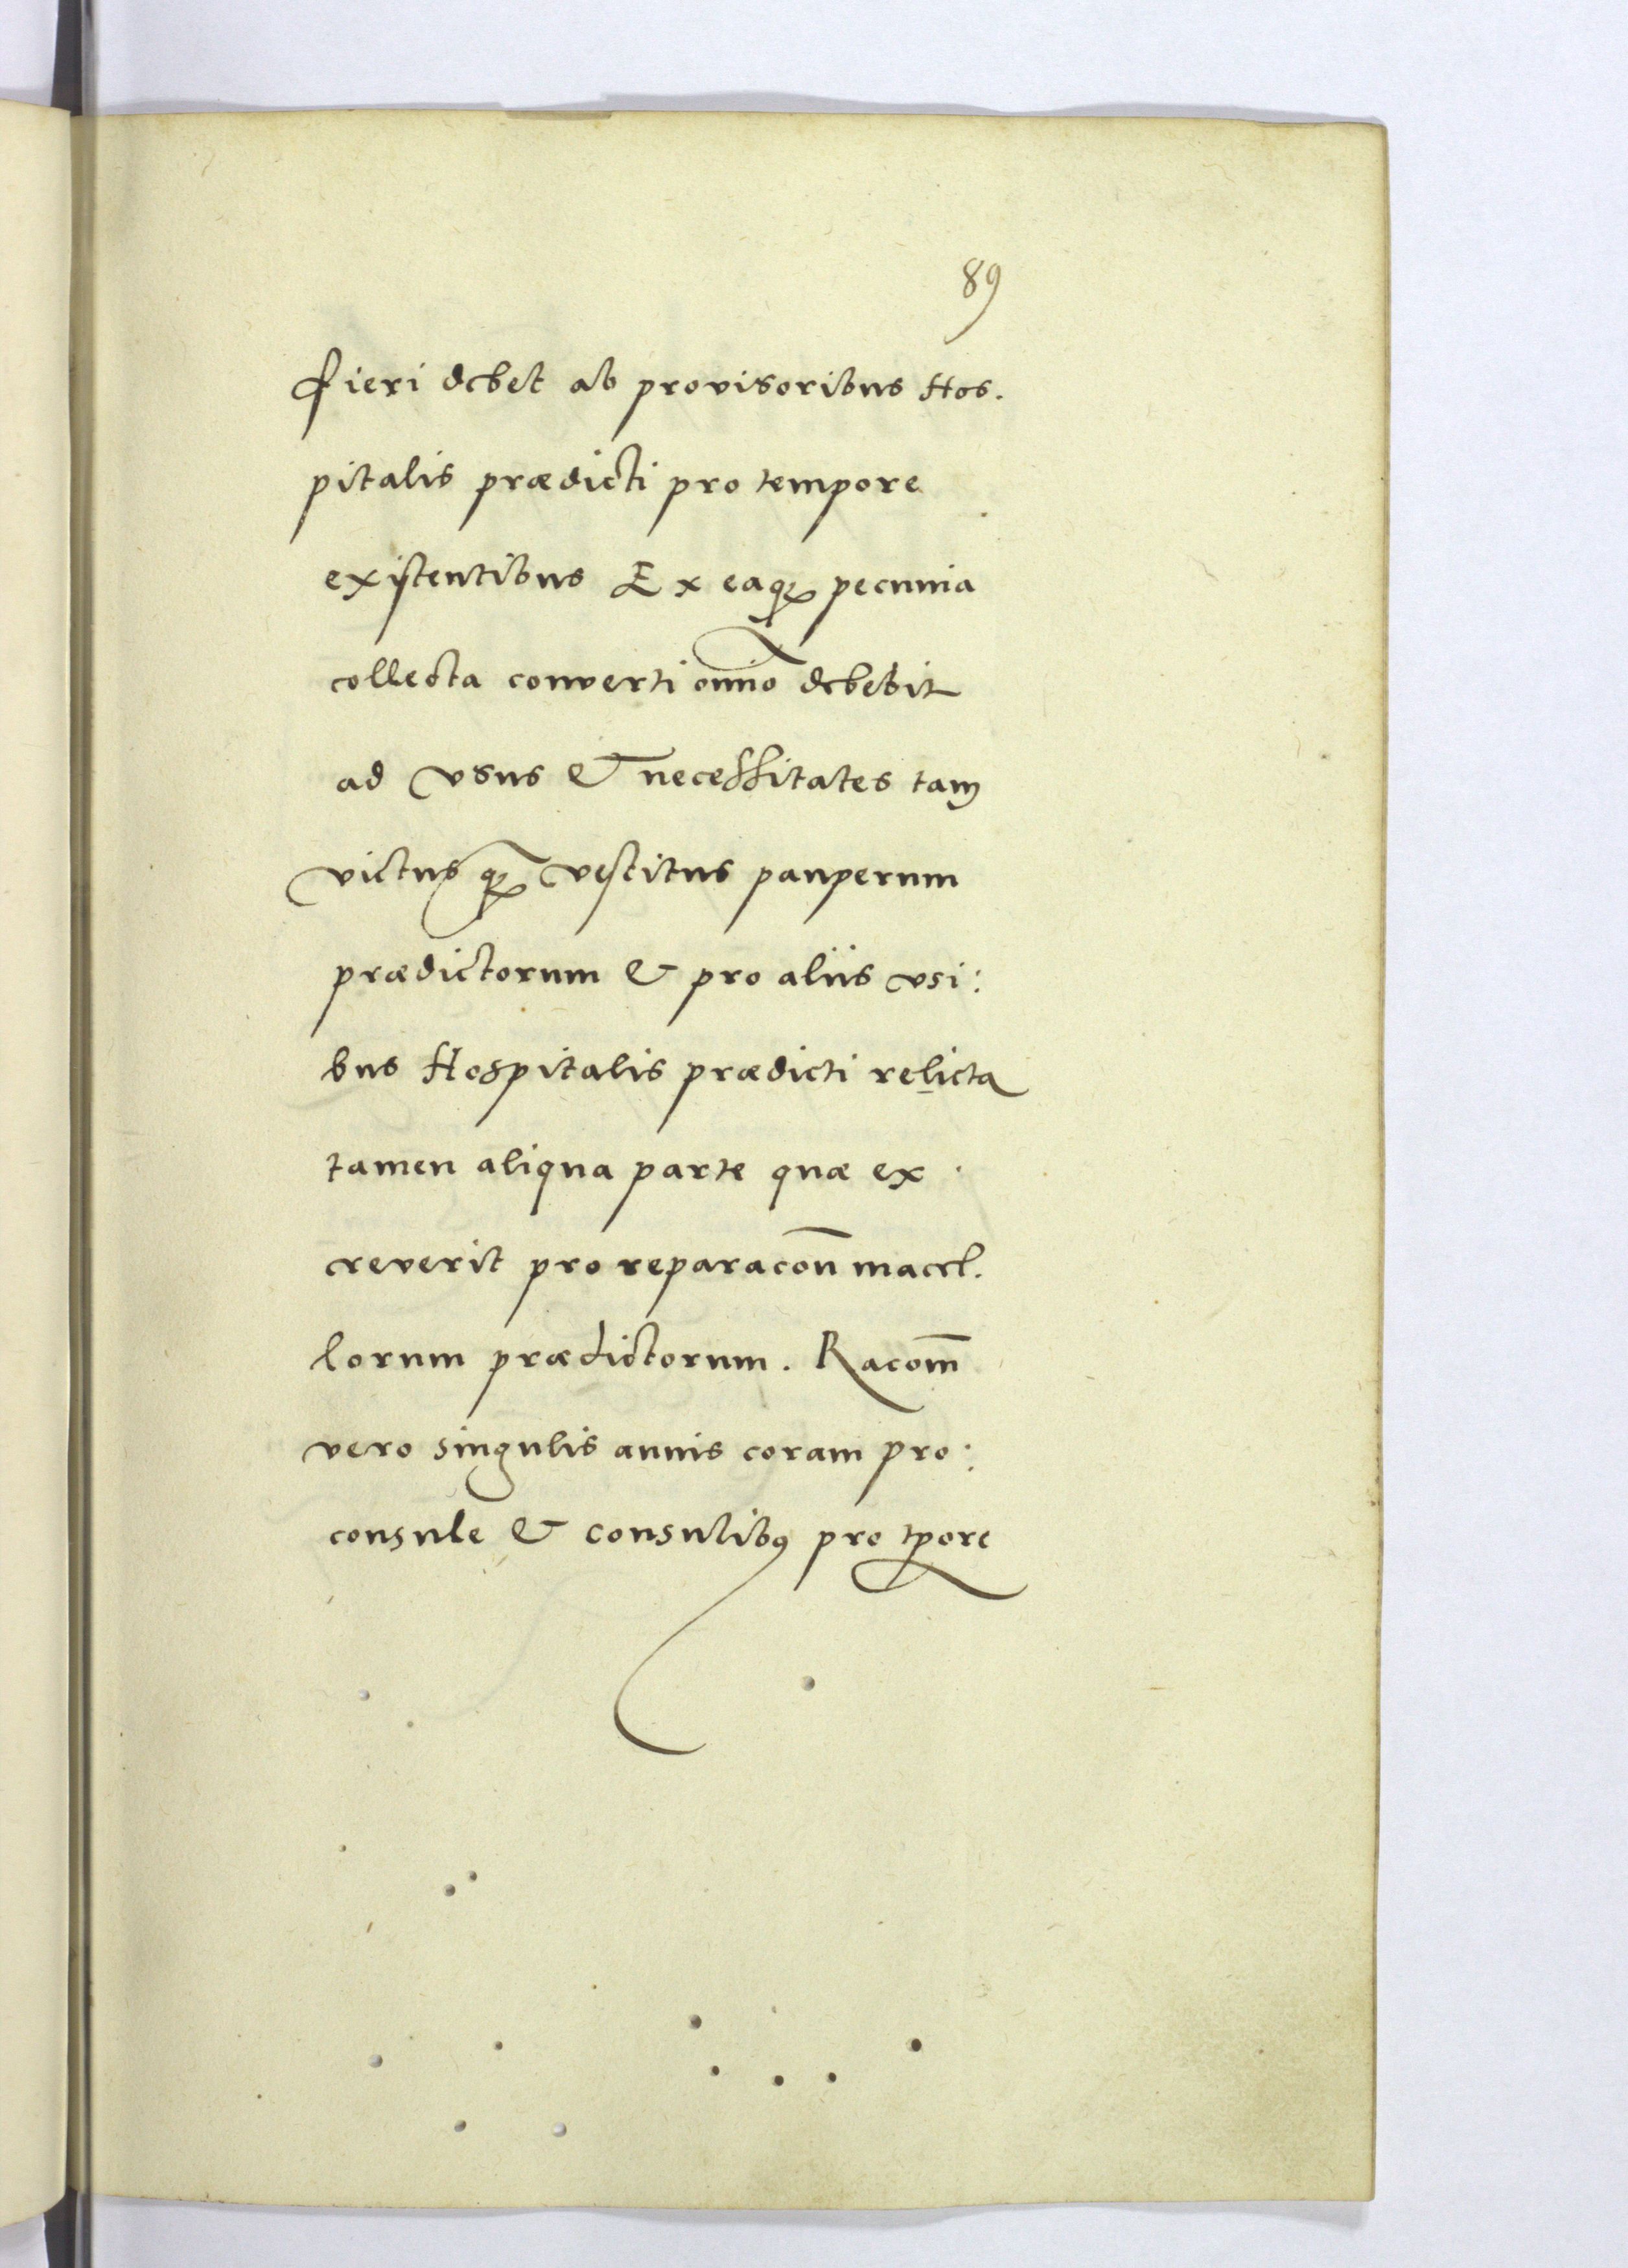 89
fieri debet ab provisoribus Hos.
pitalis prædicti pro tempore
existentibus Ex eaqꝫ pecunia
collecta converti om̅io debebit
ad vsus & necessitates tam
victus qꝫ vestitus pauperum
prædictorum & pro aliis vsi:
bus Hospitalis prædicti relicta
tamen aliqua parte quæ ex
creverit pro reparaco̅n macel.
lorum prædictorum. Racom̅
vero singulis annis coram pro:
consule & consulibꝰ pro tp̱ore